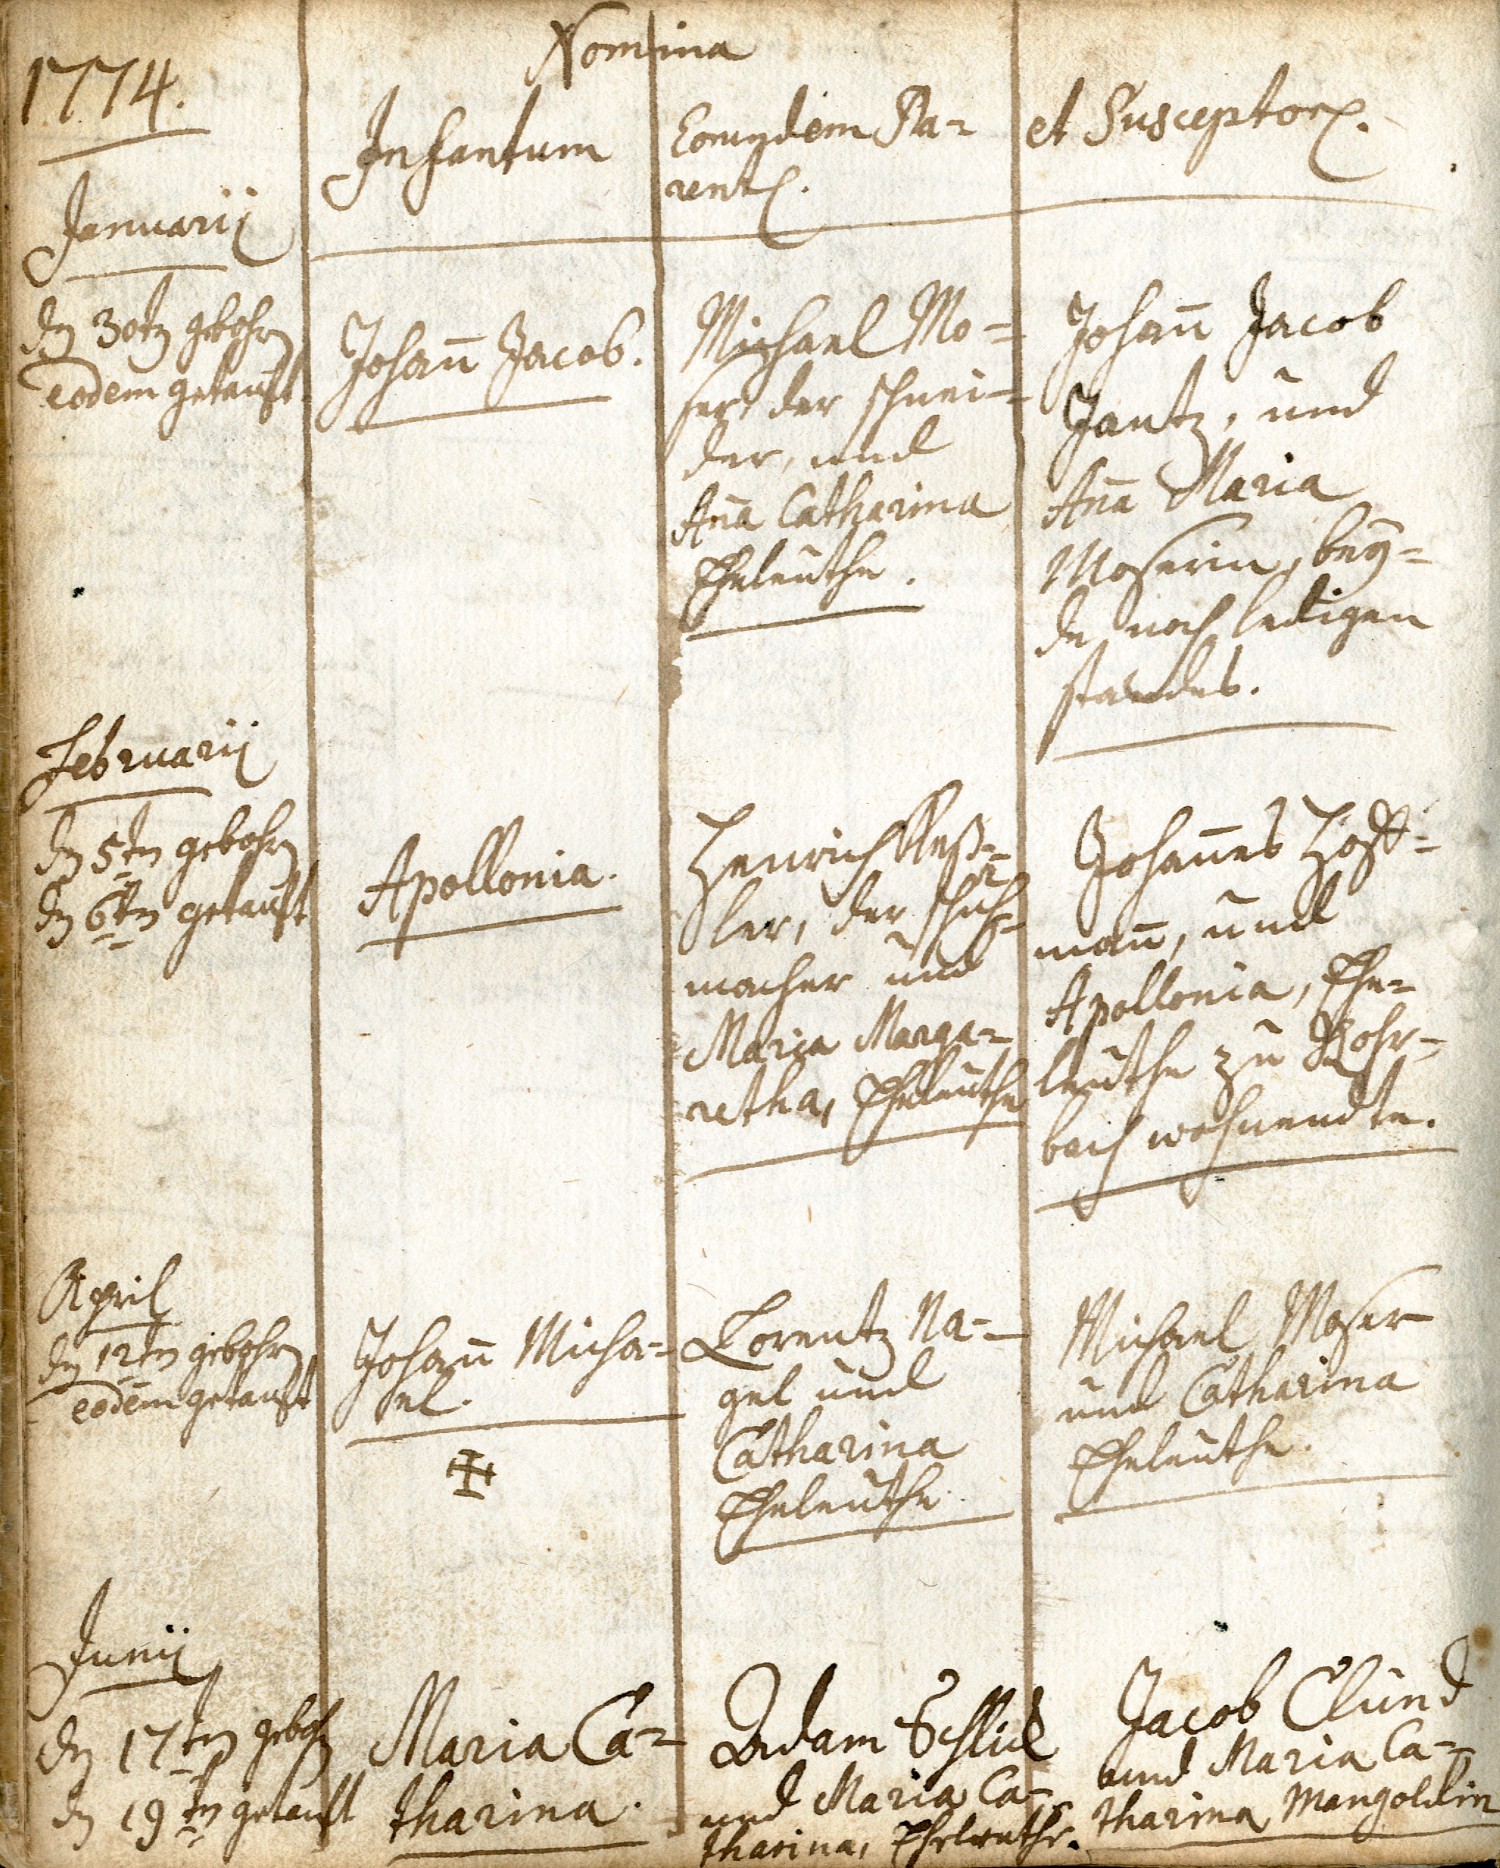 1774.
Nomina
Infantum
Eorundem Pa=
rent.
et Susceptor.
Januarij
den 30ten gebohren
eodem getauft
Johan̄ Jacob.
Michael Mo=
ser, der schnei=
der, und
An̄a Catharina
Eheleuthe.
Johan̄ Jacob
Jantz, und
An̄a Maria
Moserin, bey=
de noch ledigen
standes.
Februarij
den 5ten gebohren
den 6ten getauft
Apollonia.
Henrich
ler, der schuh=
macher und
Maria Marga=
retha, Eheleuthe
Johan̄es Hoff=
man̄, und
Apollonia, Ehe=
leuthe zu Rohr=
bach wohnendte.
April
den 12ten gebohren
eodem getauft
Johan̄ Micha=
el.
Lorentz Na=
gel und
Catharina
Eheleuthe
Michael Moser
und Catharina
Eheleuthe.
Junij
den 17ten geboh
den 19ten getauft
Maria Ca=
tharina.
Adam Schlick
und Maria Ca=
tharina, Eheleuthe.
Jacob Clund
und Maria Ca=
tharina Mangoldin